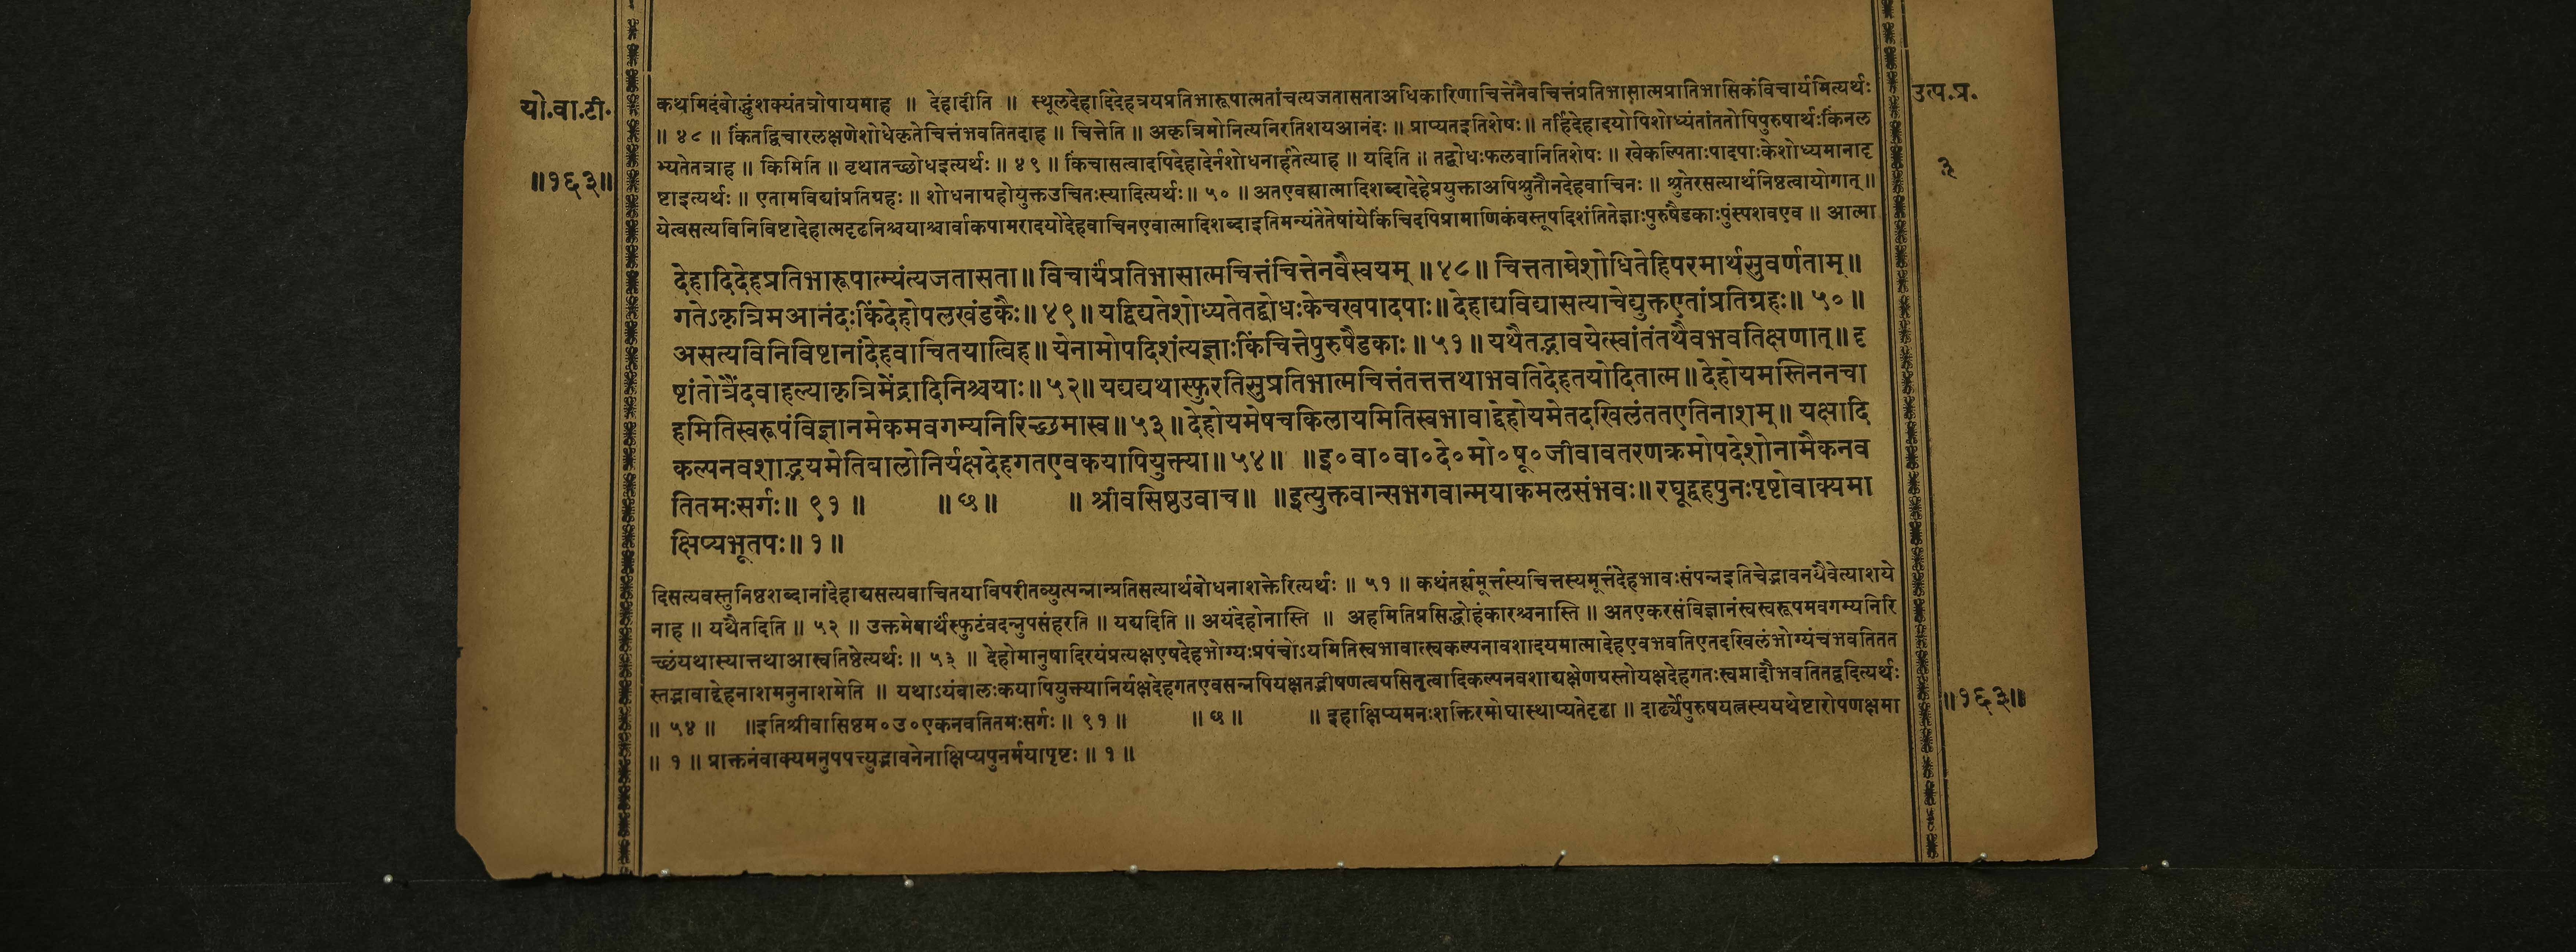 यो.वा.टी.
॥१६३॥
उत्प.प्र.
३
कथमिदंबोद्धुंशक्यंतत्रोपायमाह ॥ देहादीति ॥ स्थूलदेहादिदेहत्रयप्रतिभारूपात्मतांचत्यजतासताअधिकारिणाचित्तेनैवचित्तंप्रतिभासात्मप्रातिभासिकंविचार्यमित्यर्थः
॥ ४८ ॥ किंतद्विचारलक्षणेशोधेकृतेचित्तंभवतितदाह ॥ चित्तेति ॥ अकृत्रिमोनित्यनिरतिशयआनंदः ॥ प्राप्यतइतिशेषः ॥ तर्हिदेहादयोपिशोध्यंतांततोपिपुरुषार्थःकिंनल
भ्यतेतत्राह ॥ किमिति ॥ वृथातच्छोधइत्यर्थः ॥ ४९ ॥ किंचासत्वादपिदेहादेर्नशोधनार्हतेत्याह ॥ यदिति ॥ तद्बोधःफलवानितिशेषः ॥ खेकल्पिताःपादपाःकेशोध्यमानादृ
ष्टाइत्यर्थः ॥ एतामविद्यांप्रतिग्रहः ॥ शोधनाग्रहोयुक्तउचितःस्यादित्यर्थः ॥ ५० ॥ अतएवह्यात्मादिशब्दादेहेप्रयुक्ताअपिश्रुतौनदेहवाचिनः ॥ श्रुतेरसत्यार्थनिष्ठत्वायोगात् ॥
येत्वसत्यविनिविष्टादेहात्मदृढनिश्चयाश्चार्वाकपामरादयोदेहवाचिनएवात्मादिशब्दाइतिमन्यंतेतेषांयेकिंचिदपिप्रामाणिकंवस्तूपदिशंतितेज्ञाःपुरुषैडकाःपुंस्पशवएव ॥ आत्मा
देहादिदेहप्रतिभारूपात्म्यंत्यजतासता ॥ विचार्यंप्रतिभासात्मचित्तंचित्तेनवैस्वयम् ॥ ४८ ॥ चित्तताम्रेशोधितेहिपरमार्थसुवर्णताम् ॥
गतेऽकृत्रिमआनंदःकिंदेहोपलखंडकैः ॥ ४९ ॥ यद्विद्यतेशोध्यतेतद्बोधःकेचखपादपाः ॥ देहाद्यविद्यासत्याचेद्युक्तएतांप्रतिग्रहः ॥ ५० ॥
असत्यविनिविष्टानांदेहवाचितयात्विह ॥ येनामोपदिशंत्यज्ञाःकिंचित्तेपुरुषैडकाः ॥ ५१ ॥ यथैतद्भावयेत्स्वांतंतथैवभवतिक्षणात् ॥ दृ
ष्टांतोत्रैंदवाहल्याकृत्रिमेंद्रादिनिश्चयाः ॥ ५२ ॥ यद्यद्यथास्फुरतिसुप्रतिभात्मचित्तंतत्तत्तथाभवतिदेहतयोदितात्म ॥ देहोयमस्तिननचा
हमितिस्वरूपंविज्ञानमेकमवगम्यनिरिच्छमास्व ॥ ५३ ॥ देहोयमेषचकिलायमितिस्वभावाद्देहोयमेतदखिलंततएतिनाशम् ॥ यक्षादि
कल्पनवशाद्भयमेतिबालोनिर्यक्षदेहगतएवकयापियुक्त्या ॥ ५४ ॥ ॥ इ०वा०वा०दे०मो०षू०जीवावतरणक्रमोपदेशोनामैकनव
तितमःसर्गः ॥ ९१ ॥ ॥ ७ ॥ ॥ श्रीवसिष्ठउवाच ॥ ॥ इत्युक्तवान्सभगवान्मयाकमलसंभवः ॥ रघूद्वहपुनःपृष्टोवाक्यमा
क्षिप्यभूतपः ॥ १ ॥
दिसत्यवस्तुनिष्ठशब्दानांदेहाद्यसत्यवाचितयाविपरीतव्युत्पन्नान्प्रतिसत्यार्थबोधनाशक्तेरित्यर्थः ॥ ५१ ॥ कथंतर्ह्यमूर्त्तस्यचित्तस्यमूर्त्तदेहभावःसंपन्नइतिचेद्भावनयैवेत्याशये
नाह ॥ यथैतदिति ॥ ५२ ॥ उक्तमेवार्थंस्फुटंवदन्नुपसंहरति ॥ यद्यदिति ॥ अयंदेहोनास्ति ॥ अहमितिप्रसिद्धोहंकारश्चनास्ति ॥ अतएकरसंविज्ञानंस्वस्वरूपमवगम्यनिरि
च्छंयथास्यात्तथाआस्वतिष्ठेत्यर्थः ॥ ५३ ॥ देहोमानुषादिरयंप्रत्यक्षएषदेहभोग्यःप्रपंचोऽयमितिस्वभावात्स्वकल्पनावशादयमात्मादेहएवभवतिएतदखिलंभोग्यंचभवतितत
स्तद्भावाद्देहनाशमनुनाशमेति ॥ यथाऽयंबालःकयापियुक्त्यानिर्यक्षदेहगतएवसन्नपियक्षतद्भीषणत्वग्रसितृत्वादिकल्पनवशाद्यक्षेणग्रस्तोयक्षदेहगतःस्वमादौभवतितद्वदित्यर्थः
॥ ५४ ॥ ॥ इतिश्रीवासिष्ठम०उ०एकनवतितमःसर्गः ॥ ९१ ॥ ॥ ७ ॥ ॥ इहाक्षिप्यमनःशक्तिरमोघास्थाप्यतेदृढा ॥ दार्ढ्येपुरुषयत्नस्ययथेष्टारोपणक्षमा
॥ १ ॥ प्राक्तनंवाक्यमनुपपत्त्युद्भावनेनाक्षिप्यपुनर्मयापृष्टः ॥ १ ॥
॥१६३॥